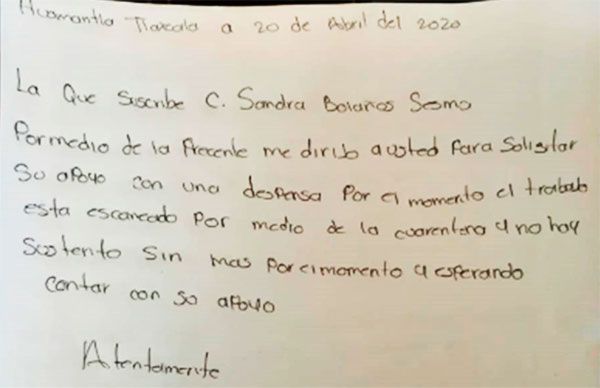 Huamantla Tlaxcala a 20 de Abril del 2020
La Que Suscribe C. Sandra Bolaños Sesmo
Por medio de la Precente me dirijo a usted Para Solisitar
Su aPoyo con una despensa Por el momento el trabajo
esta escaneado Por medio de la cuarentena y no hay
Sustento Sin mas Por el momento y esperando
contar con su aPoyo
Atentamente